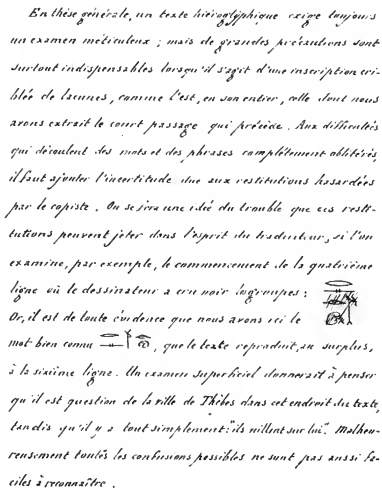 En thèse générale, un texte hiéroglyphique exige toujours
un examen méticuleux ; mais de grandes précautions sont
surtout indispensables lorsqu'il s'agit d'une inscription cri-
blée de lacunes, comme l'est, en son entier, celle dont nous
avons extrait le court passage qui précède. Aux difficultés
qui découlent des mots et des phrases complètement oblitérés,
il faut ajouter l'incertitude due aux restitutions hasardées
par le copiste. On se fera une idée du trouble que ces resti-
tutions peuvent jeter dans l'esprit du traducteur, si l'on
examine, par exemple, le commencement de la quatrième
ligne où le dessinateur a cru voir les groupes :
Or, il est de toute évidence que nous avons ici le
mot bien connu , que le texte reproduit, au surplus,
à la sixième ligne. Un examen superficiel donnerait à penser
qu'il est question de la ville de Thèbes dans cet endroit du texte,
tandis qu'il y a tout simplement: "ils sur lui". Malheu-
reusement toutes les confusions possibles ne sont pas aussi fa-
ciles à reconnaître.